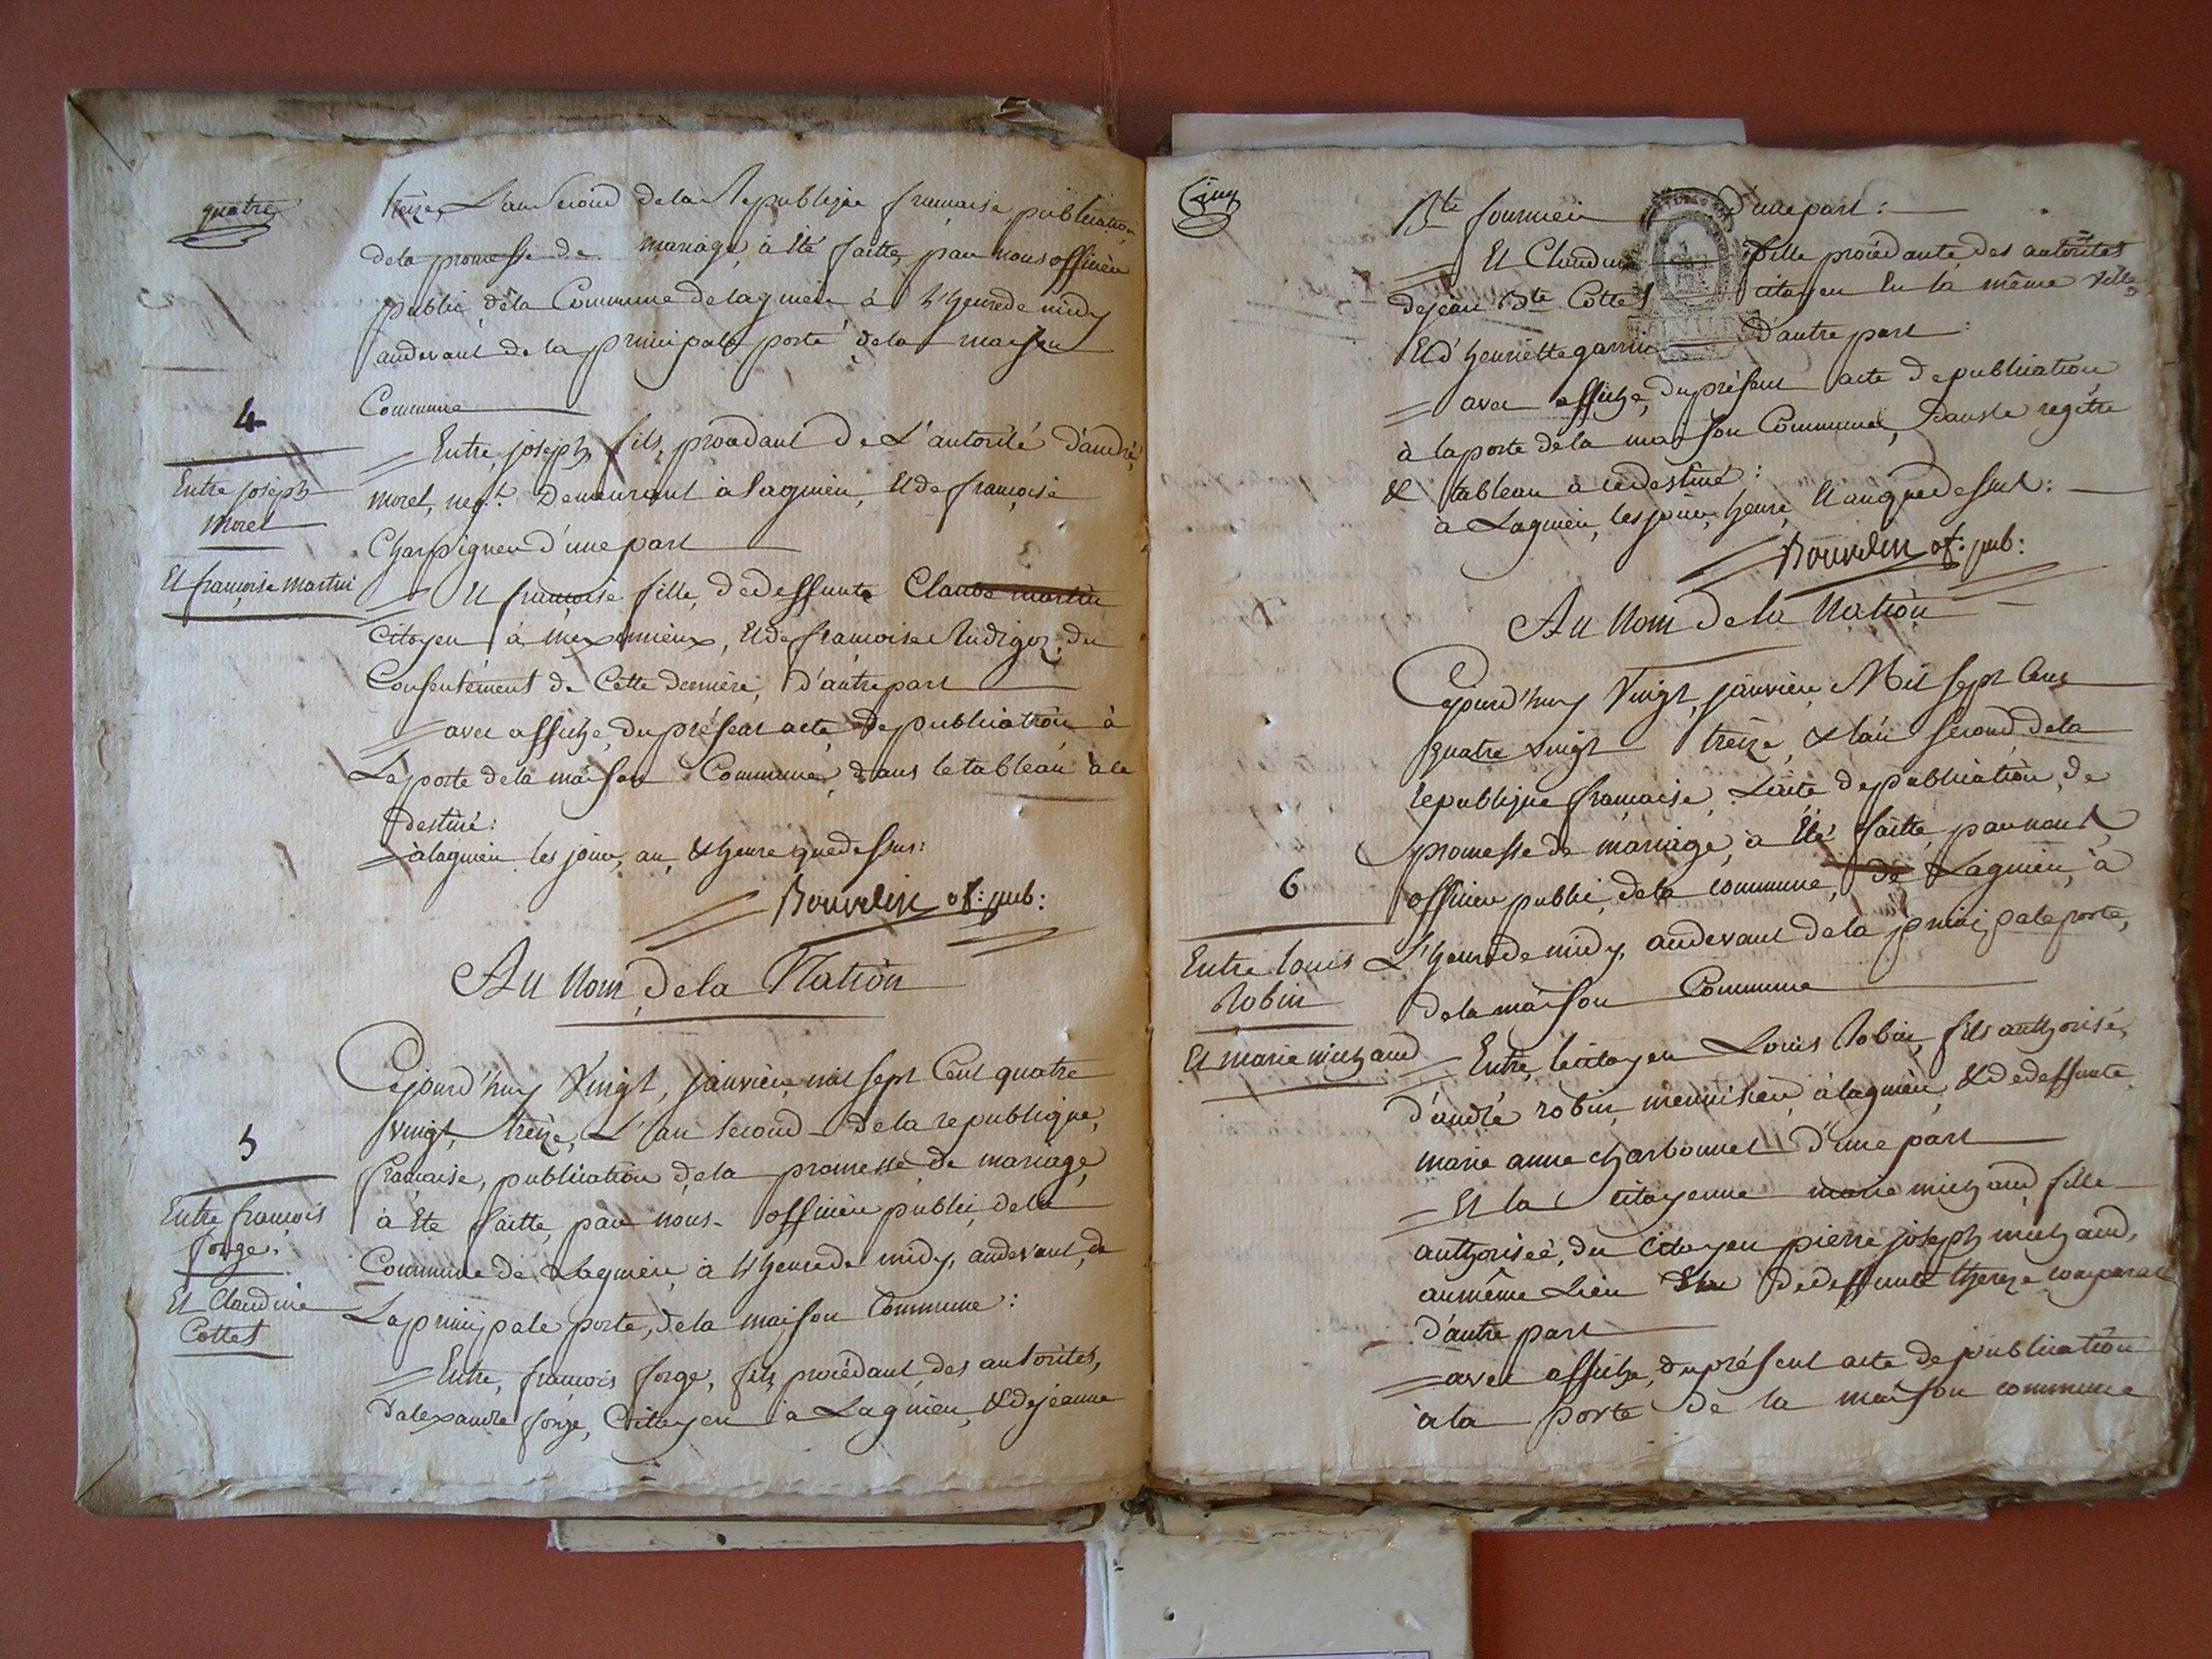 quatre
treize, L'an second de la Republique francaise, publication
dela promesse de mariage, à été faitte, par nous officier
public, dela Commune de lagnieu à L'heure de midy
audevant de la principale porte dela maison
Commune
4
Entre joseph
morel
Et françoise martin
Entre, joseph, fils, procédant de L'autorité d'andré
morel, negt. Demeurant à lagnieu, Et de françoise
Charpigneu d'une part
Et francoise fille, de deffunte Claude martin
Citoyen à meximieux, Et de francoise Rudigoz, du
Consentement de Cette derniere, d'autre part
avec affiche, du présent acte, de publication à
La porte dela maison Commune, dans le tableau à ce
destiné:
à lagnieu les jour, an, & heure que dessus:
Bouvelin of: pub:
Au Nom dela Nation
5
Entre francois
forge.
Et Claudine
Cottet
Cejourd'huy Vingt, janvier, mil sept Cent quatre
vingt, treize, L'an second dela republique,
francaise, publication dela promesse de mariage,
à Eté faitte, par nous officier public, dela
Commune de Lagnieu, à L'heure de midy, audevant, de
La principale porte, dela maison Commune:
Entre, françois forge, fils, procédant des autorités,
d'alexandre forge, Citoyen à Lagnieu, & de jeanne
Cinq
Bte fournier d'une part:
Et Claudine fille procédante des autorités
de jean Bte Cottet citoyen en la même ville
Et d'henriette garnier d'autre part:
avec affiche, du présent acte de publication
à la porte dela maison Commune, dans le regitre
& tableau à ce destiné:
à Lagnieu, les jour, heure, Et an que dessus:
Bouvelin of: pub:
Au Nom dela Nation
Cejourd'huy Vingt, janvier Mil sept Cent
quatre vingt treize, & l'an second dela
republique francaise, L'acte de publication, de
promesse de mariage, à Eté faitte, par nous
officier public, dela commune, de Lagnieu, à
L'heure de midy, audevant dela principale porte,
dela maison Commune
6
Entre louis
Robin
Et marie michaud
Entre, le citoyen Louis Robin, fils authorisé,
d'andré robin, menuisier, à lagnieu & de deffunte
marie anne charbonnet d'une part
Et la citoyenne marie michaud fille
authorisée, du Citoyen pierre joseph michaud,
au même Lieu de deffunte thereze
d'autre part
avec affiche, du présent acte de publication
à la porte de la maison commune